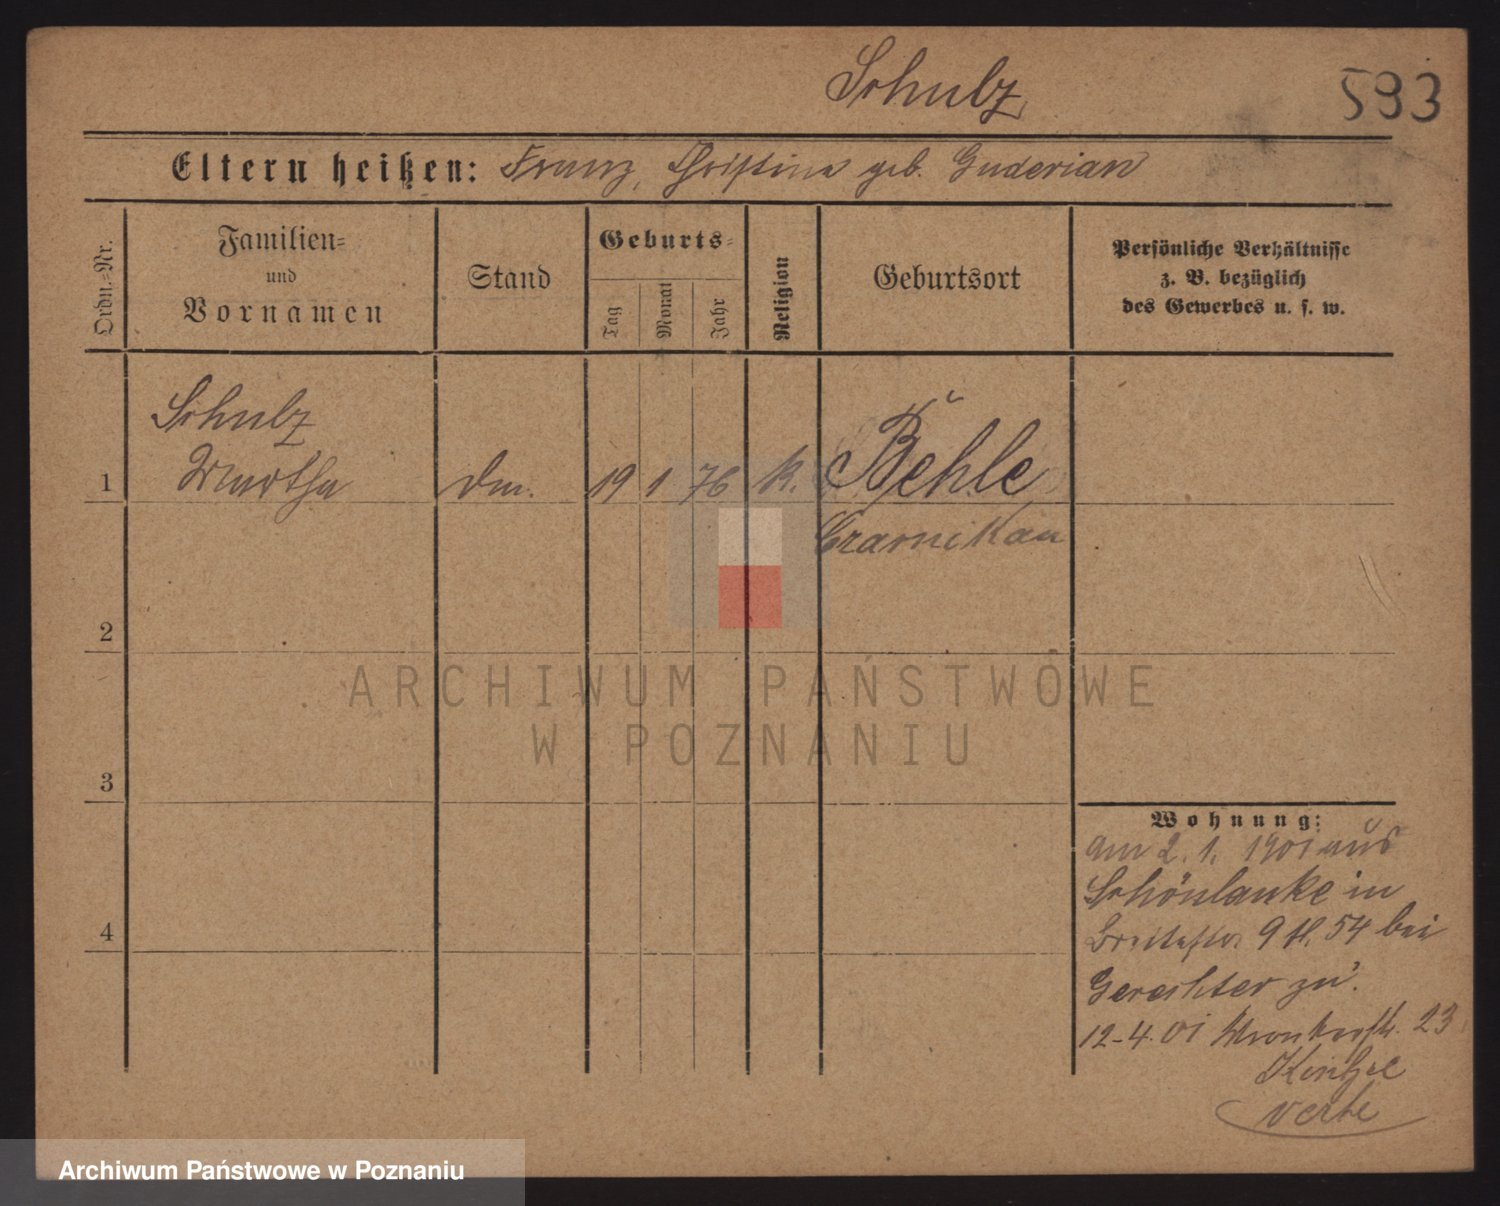 Schulz
593
Eltern heißen: Franz, Christina geb. Guderian
Ordn.-Nr.
Familien-
und
Vornamen
Stand
Geburts-
Tag
Monat
Jahr
Religion
Geburtsort
Persönliche Verhältnisse
z. B. bezüglich
des Gewerbes u. s. w.
Schulz
1 Martha Dm. 19 1 76 k. Behle
Czarnikau
2
3
4
ARCHIWUM PAŃSTWOWE
W POZNANIU
Wohnung:
am 2. 1. 1901 aus
Schönlanke in
Breitestr. 9 H. 54 bei
Gerechter zu.
12-4. 01 Wronkerstr. 23
Archiwum Państwowe w Poznaniu